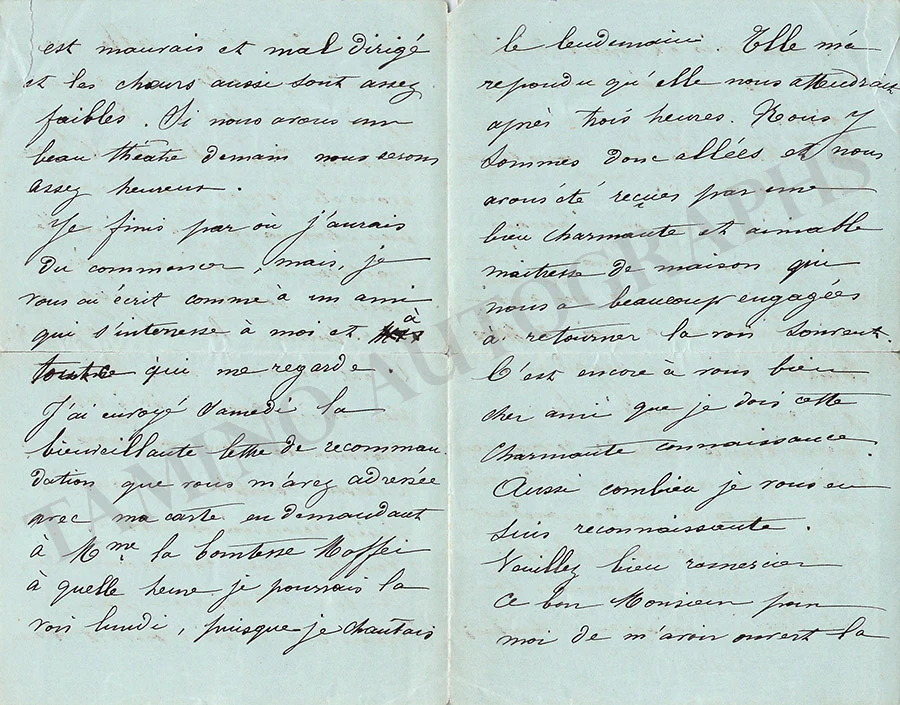 est mauvais et mal dirigé
et les chœurs aussi sont assez
faibles. Si nous avons un
beau théâtre demain nous serons
assez heureux.
Je finis par où j'aurais
du commencer, mais, je
vous ai écrit comme à un ami
qui s'interresse à moi et à
tout ce qui me regarde.
J'ai envoyé Samedi la
bienveillante lettre de recomman
dation que vous m'avez adressée
avec ma carte en demandant
à Mme la Comtesse Maffei
à quelle heure je pourrais la
voir lundi, puisque je chantais
le lendemain. Elle m'a
repondu qu'elle nous attendrait
après trois heures. Nous y
sommes donc allées et nous
avons été reçues par une
bien charmante et aimable
maitresse de maison qui
nous a beaucoup engagées
à retourner la voir souvent.
C'est encore à vous bien
cher ami que je dois cette
charmante connaissance.
Aussi combien je vous en
suis reconnaissante.
Veuillez bien remercier
ce bon Monsieur pour
moi de m'avoir ouvert la
TAMINO AUTOGRAPHS